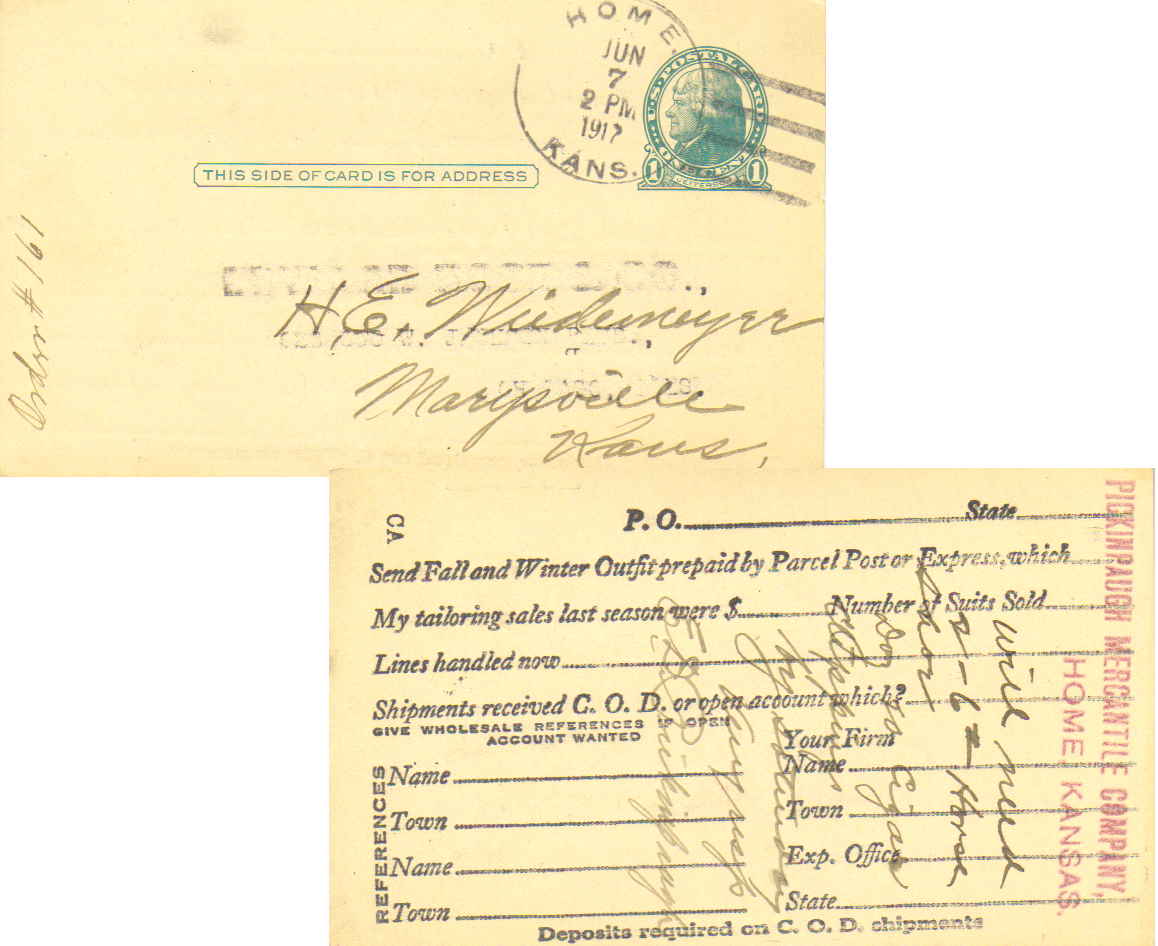 HOME.
JUN
7
2 PM
1917
KANS.
U.S. POSTAL CARD
ONE CENT
1 JEFFERSON 1
THIS SIDE OF CARD IS FOR ADDRESS
Order # 1161
H. E. Wiedemeyer
Marysville
Kans,
CA
P. O. State
Send Fall and Winter Outfit prepaid by Parcel Post or Express, which
My tailoring sales last season were $ Number of Suits Sold
Lines handled now
Shipments received C. O. D. or open account which?
GIVE WHOLESALE REFERENCES IF OPEN
ACCOUNT WANTED
Your Firm
REFERENCES
Name Name
Town Town
Name Exp. Office
Town State
Deposits required on C. O. D. shipments
PICKINPAUGH MERCANTILE COMPANY,
HOME, KANSAS.
will need
2-6 = Horse
Shoes
Cigar
by Saturday